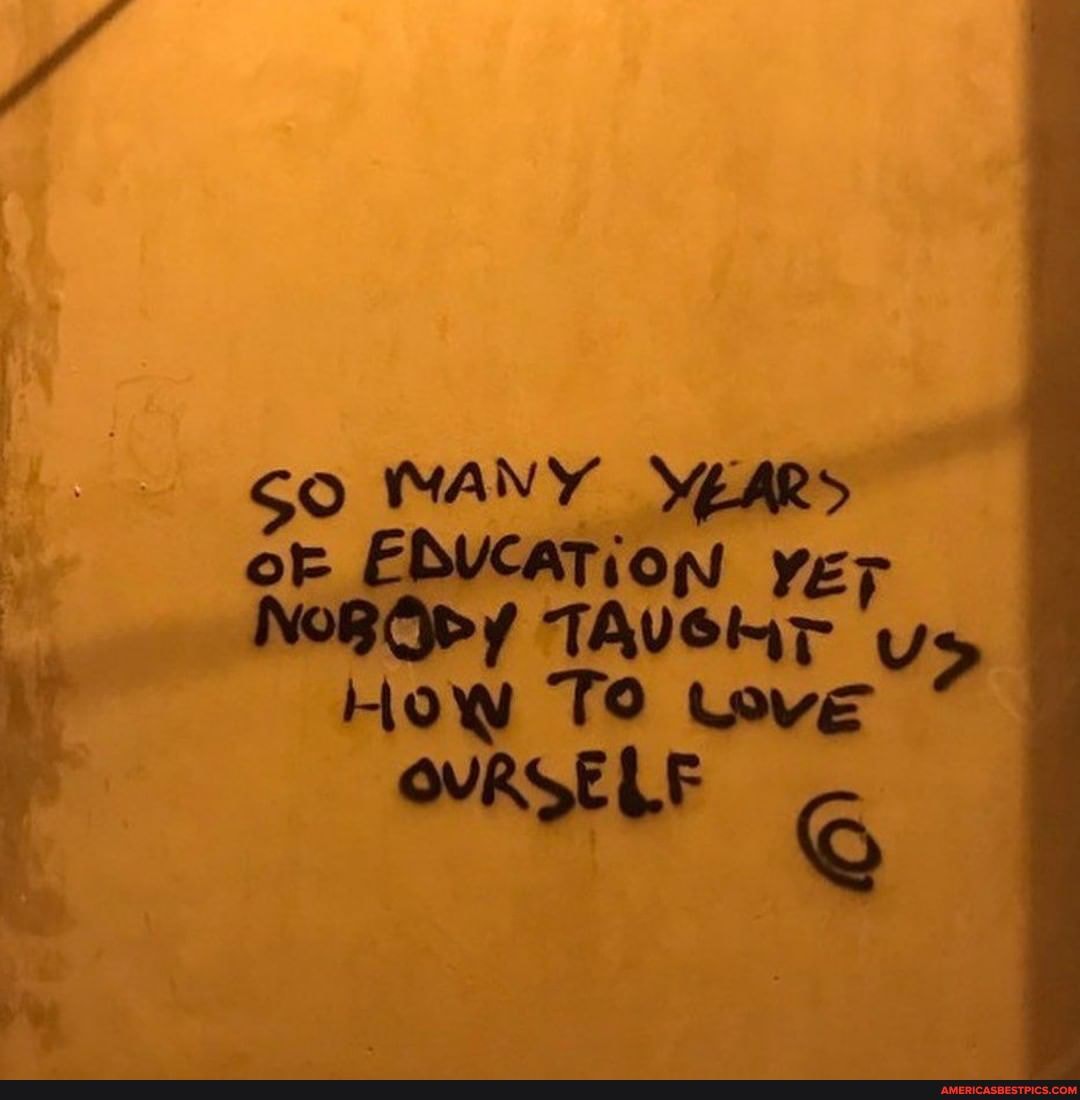 SO MANY YEARS
OF EDUCATiON YET
NOBODY TAUGHT US
HOW TO LOVE
OURSELF
AMERICASBESTPICS.COM